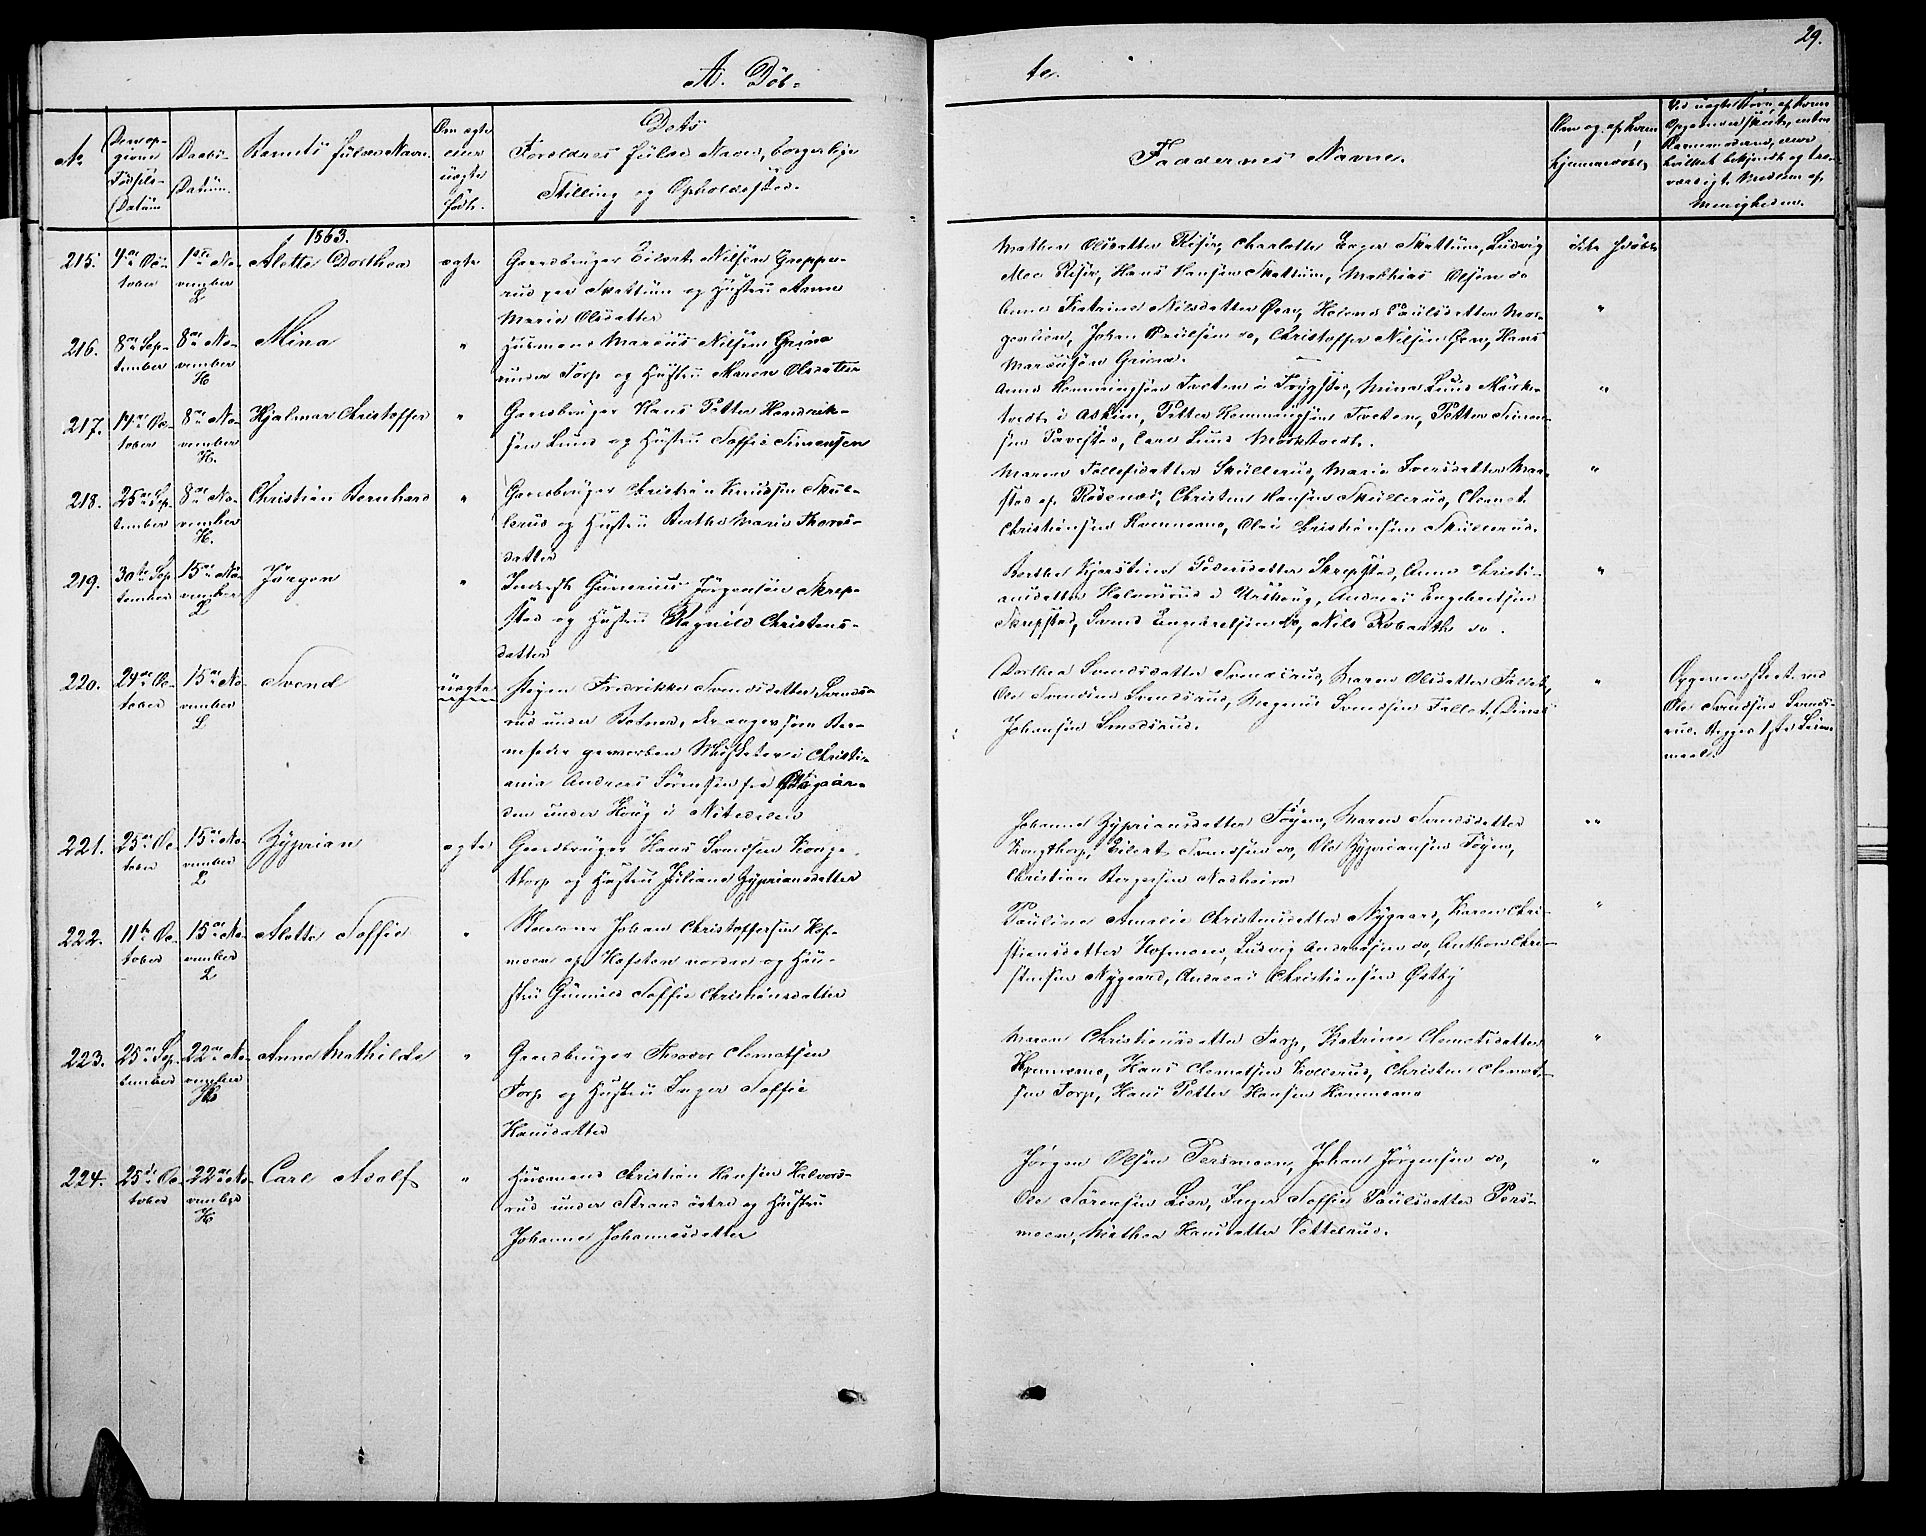 29.
A. Døb-
te.
No
Den op-
givne
Fødsels-
Datum
Daabs-
Datum.
Barnets fulde Navn.
Om ægte
eller
uægte
født.
Dets
Forældres fulde Navn, borgerlige
Stilling og Opholdssted.
Faddernes Navne.
Om og af hvem
hjemmedøbt,
Menigheden.
1863.
215.
4de Oc-
tober
1ste No-
vember
L
Alette Dorthea
ægte
Gaardbruger Eilert Nilsen Greppe-
rud paa Skattum og Hustru Anne
Marie Olsdatter
Mathea Olsdatter Risør, Charlotte Enger Skattum, Ludvig
Moe Risør, Hans Hansen Skattum, Mathias Olsen do
ikke hjdøbt
216.
8de Sep-
tember
8de No-
vember
H
Mina
"
Husmand Marcus Nilsen Grime
under Torp og Hustru Maren Olsdatter
Anne Katrine Nilsdatter Øren, Helene Paulsdatter Mor-
genlien, Johan Paulsen do, Christoffer Nilsen Øren, Hans
Marcussen Grime.
"
217.
14de Oc-
tober
8de No-
vember
H.
Hjalmar Christoffer
"
Gaardbruger Hans Petter Hendrik-
sen Lund og Hustru Soffie Simensen
Anne Hemmingsen Tveten i Trygstad, Mina Lund Mørk-
tvedt i Askim, Petter Hemmingsen Tveten, Petter Simen-
sen Tavestad, Carl Lund Mørktvedt.
"
218.
25de Sep-
tember
8de No-
vember
H.
Christian Bernhard
"
Gaardbruger Christian Knudsen Skul-
lerud og Hustru Berthe Marie Thors-
datter
Maren Tollefsdatter Skullerud, Marie Iversdatter Mar-
stad af Rødenæs, Christen Hansen Skullerud, Clemet
Christiansen Kvenneane, Olai Christiansen Skullerud.
"
219.
30te Sep-
tember
15de No-
vember
L
Jørgen
"
Inderst Gunerius Jørgensen Skrep-
stad og Hustru Ragnild Christens-
datter
Berthe Kjerstine Pedersdatter Skrepstad, Anne Christi-
ansdatter Halvorsrud i Urskoug, Andreas Engebretsen
Skrepstad, Svend Engebretsen do, Nils Robarth do.
"
220.
24de Oc-
tober
15de No-
vember
L
Svend
uægte
Pigen Fredrikke Svendsdatter Svends-
rud under Botner, der angav som Bar-
nefader gevorben Musketer i Christi-
ania Andreas Sørensen fra Østgaar-
den under Houg i Nitedalen
Dorthea Svendsdatter Svendsrud, Maren Olsdatter Fallet,
Ole Svendsen Svendsrud, Magnus Svendsen Fallet, Dines
Johansen Svendsrud.
"
Opgaven skeet ved
Ole Svendsen Svends-
rud. Begges 1ste Leier-
maal.
221.
25de Oc-
tober
15de No-
vember
L
Zyprian
ægte
Gaardbruger Hans Svendsen Konge-
thorp og Hustru Juliane Zypriansdatter
Johanne Zypriansdatter Tøyen, Maren Svendsdatter
Kongthorp, Eilert Svendsen do, Ole Zypriansen Tøyen,
Christian Bergersen Nadheim
""
222.
11te Oc-
tober
15de No-
vember
L
Alette Soffie
"
Johan Christoffersen Hof-
moen af Hofsten nordre og Hu-
stru Gunnild Soffie Christiansdatter
Pauline Amalie Christensdatter Nygaard, Karen Chri-
stiansdatter Hofmoen, Ludvig Andersen do, Anthon Chri-
stensen Nygaard, Andreas Christiansen Østby
"
223.
25de Sep-
tember
22de No-
vember
H
Anne Mathilde
"
Gaardbruger Theodor Clemetsen
Torp og Hustru Inger Soffie
Hansdatter
Maren Christiansdatter Torp, Katrine Clemetsdatter
Kvenneane, Hans Clemetsen Kollerud, Christen Clemet-
sen Torp, Hans Petter Hansen Kvenneane
"
224.
25de Oc-
tober
22de No-
vember
H
Carl Adolf
"
Husmand Christian Hansen Halvors-
rud under Strand østre og Hustru
Johanne Johannesdatter
Jørgen Olsen Persmoen, Johan Jørgensen do,
Ole Sørensen Lier, Inger Soffie Paulsdatter Pers-
moen, Mathea Hansdatter Vettelrud.
"